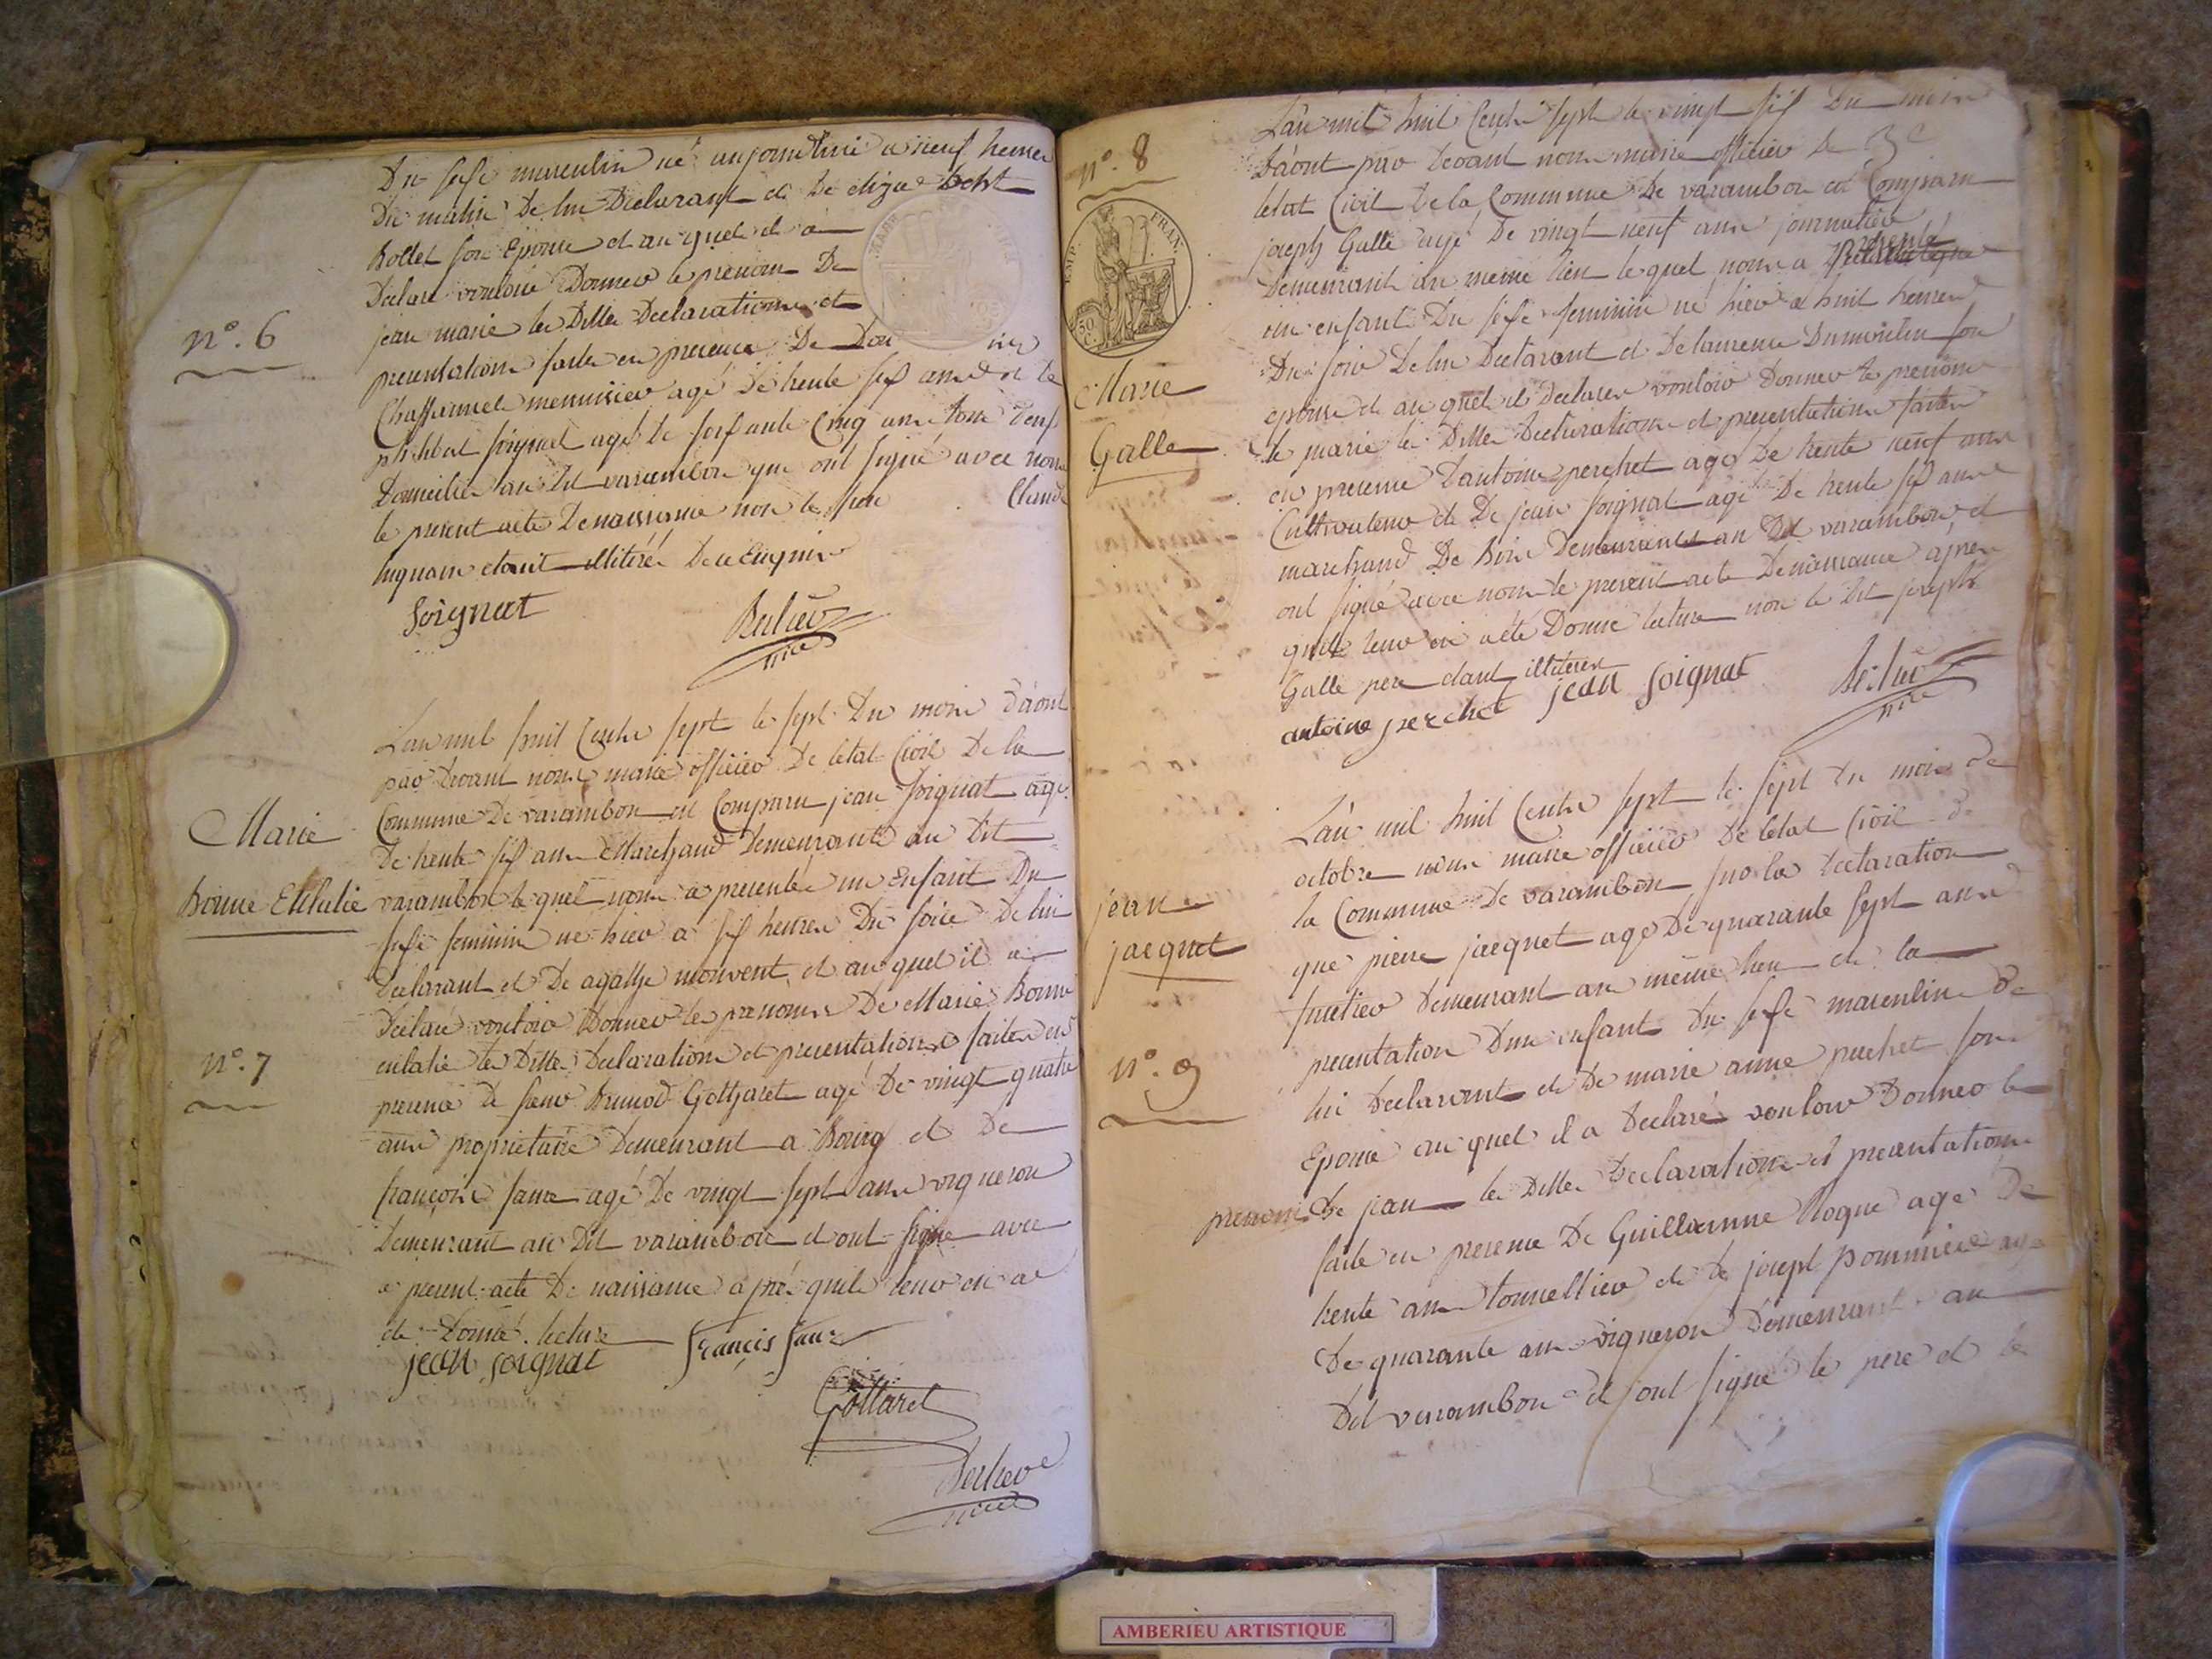 n°. 6
Du sexe masculin né aujourdhui a neuf heures
Du matin De lui Declarant et De
Bollet son Epouse et au quel il a
Declaré vouloir Donner le prenom De
jean marie les Dittes Declarations et
presentations faite en presence De
Chaffannel menuisier agé De trente six ans et de
philibert soignat agé De soixante Cinq ans tous Deux
Domicilies au dit varambon qui ont signé avec nous
le present acte De naissance non le pere Claude
etant illitéré De ce Enquis
soignat
Marie
Bonne Ethulie
n°. 7
L'an mil huit Cents sept le sept Du mois D'aout
par Devant nous maire officier De letat Civil De la
Commune De varambon est Comparu jean soignat agé
De trente six ans Marchand Demeurant au Dit
varambon le quel nous a presenté un Enfant Du
sexe feminin né hier a six heures Du soir De lui
Declarant et De agathe monvent et au quel il a
Declaré vouloir Donner les prenoms De Marie Bonne
eulatie les Dittes Declaration et presentations faites en
presence de sieur Brunod Gottaret agé De vingt quatre
ans proprietaire Demeurant a Bourg et De
françois faure agé De vingt sept ans vigneron
Demeurant au Dit varambon et ont signe avec
e present acte De naissance apré quil leur en a
eté Donné lecture
jean soignat
Gottaret
n°. 8
EMP. FRAN.
50 C.
Marie
Galle
L'an mil huit Cents sept le vingt six Du mois
D'aout par Devant nous maire officier De
letat Civil De la Commune De varambon est Comparu
joseph Galle agé De vingt neuf ans journalier
Demeurant au meme lieu le quel nous a presenté
un enfant Du sexe feminin né hier a huit heures
Du soir De lui Declarant et De laurence Dumoulin son
epouse et au quel il Declaren vouloir Donner le prenom
de marie les Dittes Declaration et presentation faites
en presence D'antoine perchet agé De trente neuf ans
Cultivateur et De jean soignat agé De trente six ans
marchand De Bois Demeurants au Dit varambon et
ont signé avec nous le present acte De naissance aprés
quil leur en a été Donné lecture non le Dit joseph
Galle pere etant illiteré
antoine perchet jean soignat
jean
jacquet
n°. 9
L'an mil huit Cents sept le sept du mois de
octobre nous maire officier De letat Civil de
la Commune De varambon sur la Declaration
que pierre jacquet agé De quarante sept ans
Demeurant au même lieu et la
presentation Dun enfant du sexe masculin De
lui Declarant et De marie anne perchet son
Epouse au quel il a Declaré vouloir Donner le
prenom De jean les Dittes Declaration et presentations
faite en presence De Guillaume Roque agé De
trente ans tonnellier et de joseph pommier agé
De quarante ans vigneron Demeurant au
Dit varambon et ont signé le pere et le
AMBERIEU ARTISTIQUE